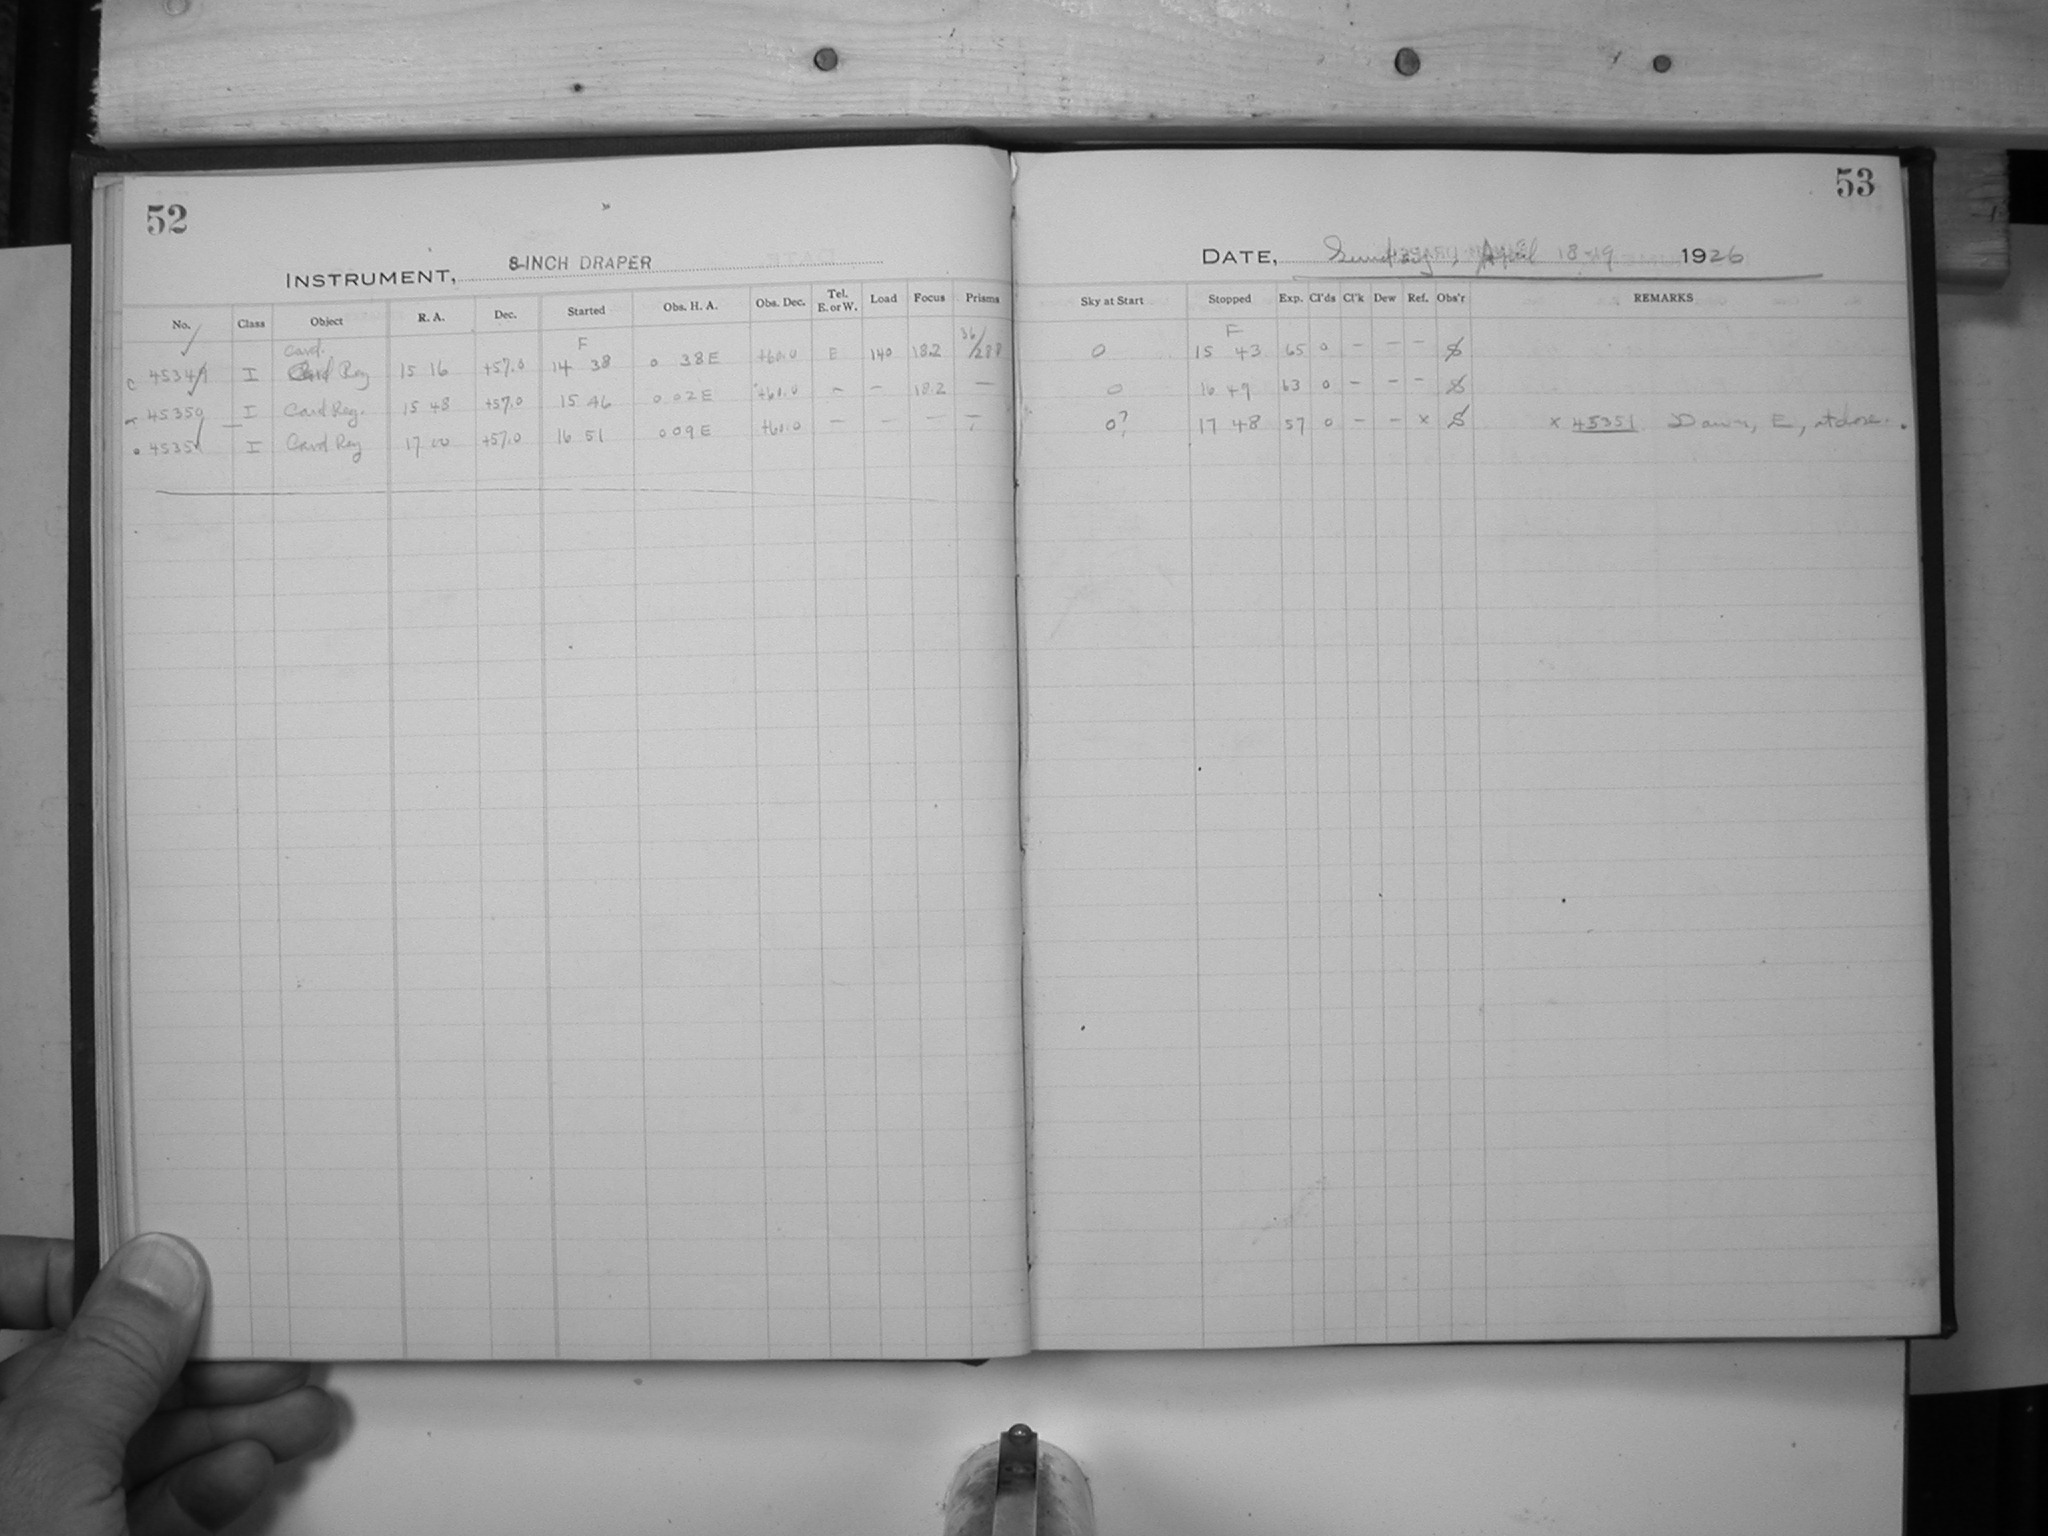 52
INSTRUMENT, 8-INCH DRAPER
No. Class Object R. A. Dec. Started Obs. H. A. Obs. Dec. Tel. E. or W. Load Focus Prisms
Card.
F
C 45349 I Card Reg 15 16 +57.0 14 38 0 38 E +60.0 E 140 18.2 36/288
45350 I Card Reg. 15 48 +57.0 15 46 0 02 E +60.0 — — 18.2 —
45351 I Card Reg 17 00 +57.0 16 51 0 09 E +60.0 — — — —
53
DATE, Sunday, April 18-19 1926
Sky at Start Stopped Exp. Cl'ds Cl'k Dew Ref. Obs'r REMARKS
F
0 15 43 65 0 — — —
0 16 49 63 0 — — —
0? 17 48 57 0 — — x x 45351 Dawn, E, at close.